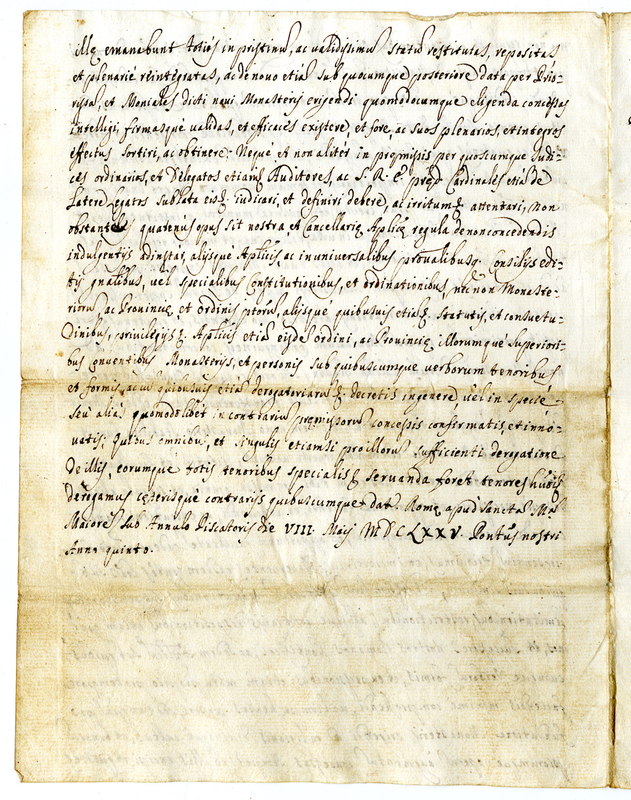 illæ emanabunt toties in pristinũ, ac validissimũ statũ restitutas, repositas
et plenarie reintegratas, ac de novo etiã sub quocumque posteriore data per Prio-
rissã, et Moniales dicti novi Monasterij erigendi quomodocumque eligenda concessas
intelligi, firmasque validas, et efficaces existere, et fore, ac suos plenarios, et integros
effectus sortiri, ac obtinere; Neque et non aliter in præmissis per quoscumque Judi-
ces ordinarios, et Delegatos etiam Auditores, ac S. R. E. præd. Cardinales etiã de
Latere Legatos sublata eis iudicari, et definiri debere, ac irritum attentari, Non
obstante quatenus opus sit nostra et Cancellariæ Aplicæ regula de non concedendis
indulgentijs ad instar, alijsque Aplicis, ac in universalibus provalibusq. Consilijs edi-
tis gnalibus, vel specialibus Constitutionibus, et ordinationibus, nec non Monaste-
riorũ, ac Provinciæ, et ordinis ptorũ, alijsque quibusvis etiã statutis, et consuetu-
dinibus, privilegijs Aplicis etiã eisdẽ ordini, ac Provinciæ, illorumque Superiori-
bus Conventibus Monasterijs, et personis sub quibuscumque verborum tenoribus
et formis, ac cũ quibusvis etiã derogatoriarũ decretis in genere, vel in specie
seu alias quomodolibet in contrariũ præmissorũ concessis confirmatis, et inno-
vatis; Quibus omnibus, et singulis etiamsi pro illorũ sufficienti derogatione
de illis, eorumque totis tenoribus specialis servanda foret tenores huiõi
derogamus cæterisque contrarijs quibuscumque dat. Romæ apud Sanctã Mãm
Maiorẽ sub Annulo Piscatoris die VIII. Maij MDCLXXV. Pontũs nostri
Anno quinto.